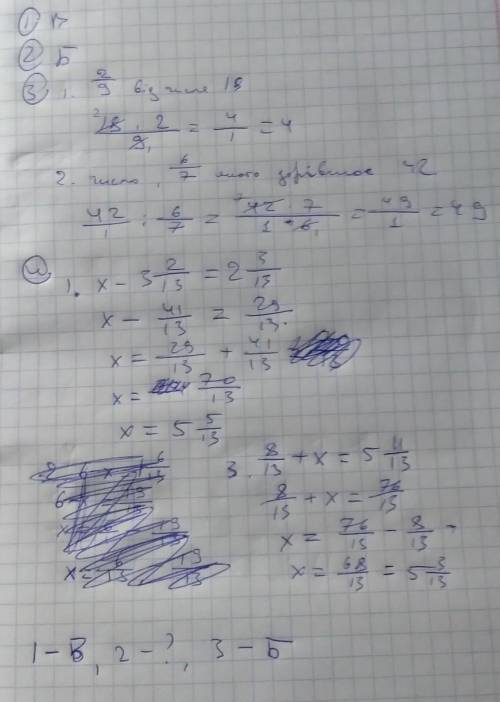 ① В
② Б
③ 1. 2/9 від числа 18
18 · 2 / 9 = 4/1 = 4
2. число, 6/7 якого дорівнює 42
42/1 : 6/7 = 42 · 7 / 1 · 6 = 49/1 = 49
④ 1. x − 3 2/13 = 2 3/13
x − 41/13 = 29/13.
x = 29/13 + 41/13
x = 70/13
x = 5 5/13
3. 8/13 + x = 5 11/13
8/13 + x = 76/13
x = 76/13 − 8/13
x = 68/13 = 5 3/13
1 – В, 2 – ?, 3 – Б